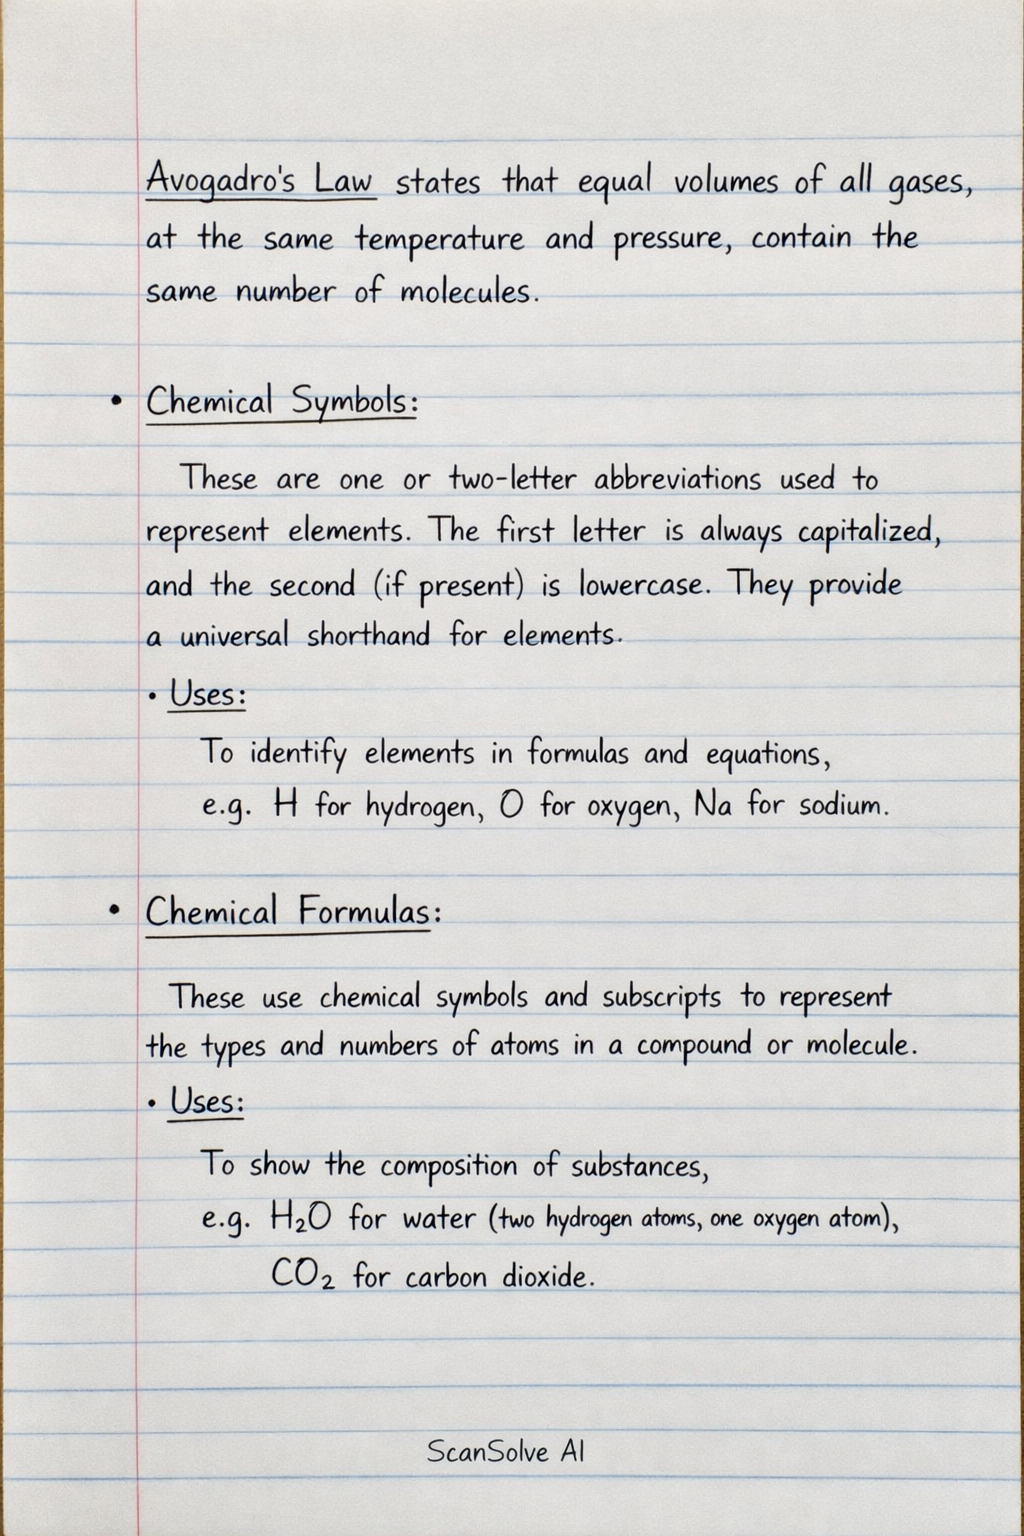 Avogadro's Law states that equal volumes of all gases,
at the same temperature and pressure, contain the
same number of molecules.
• Chemical Symbols:
These are one or two-letter abbreviations used to
represent elements. The first letter is always capitalized,
and the second (if present) is lowercase. They provide
a universal shorthand for elements.
• Uses:
To identify elements in formulas and equations,
e.g. H for hydrogen, O for oxygen, Na for sodium.
• Chemical Formulas:
These use chemical symbols and subscripts to represent
the types and numbers of atoms in a compound or molecule.
• Uses:
To show the composition of substances,
e.g. H₂O for water (two hydrogen atoms, one oxygen atom),
CO₂ for carbon dioxide.
ScanSolve AI